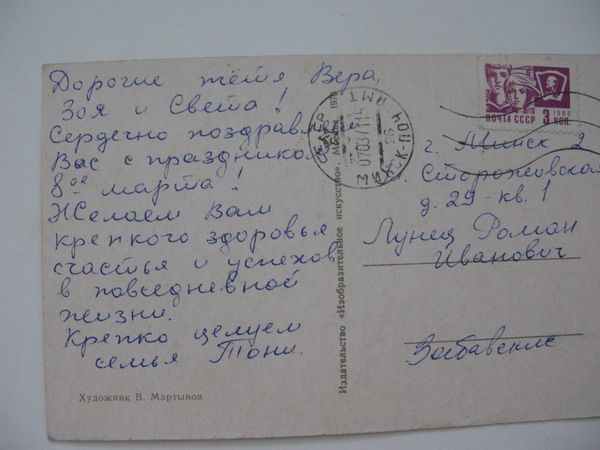 Дорогие тётя Вера,
Зоя и Света!
Сердечно поздравляем
Вас с праздником
8ое марта!
Желаем Вам
крепкого здоровья
счастья и успехов
в повседневной
жизни.
Крепко целуем
семья Тони.
Художник В. Мартынов
Издательство «Изобразительное искусство». Москва 1970
МИНСК-ПОЧ
ПОЧТА СССР
1966
3 КОП.
г. Минск 2
Сторожевская
д. 29 кв. 1
Лунец Роман
Иванович